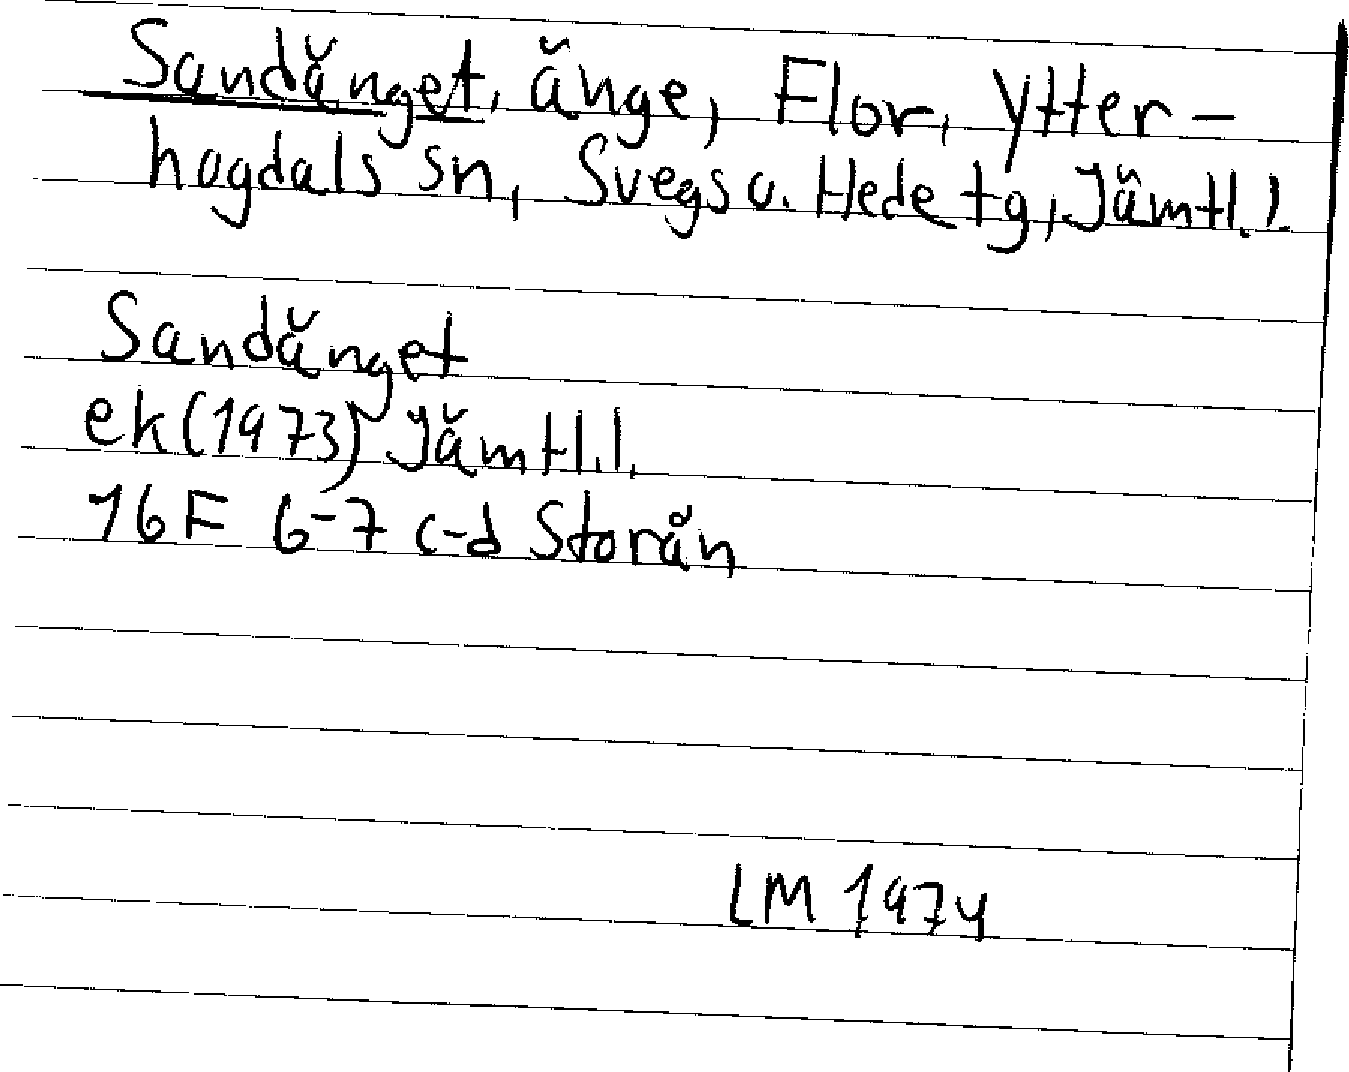 Sandänget, änge, Flor, Ytter-
hogdals sn, Svegs o. Hede tg, Jämtl.l.
Sandänget
ek (1973) Jämtl.l.
16F 6-7 c-d Storån
LM 1974